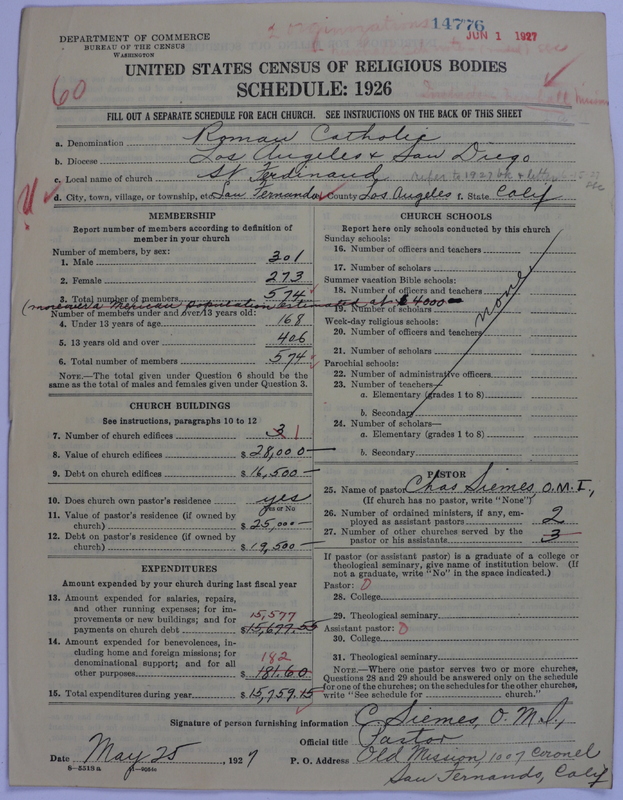 14776
JUN 1 1927
2 Organizations
DEPARTMENT OF COMMERCE
BUREAU OF THE CENSUS
WASHINGTON
UNITED STATES CENSUS OF RELIGIOUS BODIES
SCHEDULE: 1926
60
FILL OUT A SEPARATE SCHEDULE FOR EACH CHURCH. SEE INSTRUCTIONS ON THE BACK OF THIS SHEET
a. Denomination Roman Catholic
b. Diocese Los Angeles & San Diego
c. Local name of church St Ferdinand
d. City, town, village, or township, etc. San Fernando County Los Angeles f. State Calif
MEMBERSHIP
Report number of members according to definition of member in your church
Number of members, by sex:
1. Male 301
2. Female 273
3. Total number of members 574
(moreover Mexican population estimated at 4000
Number of members under and over 13 years old:
4. Under 13 years of age 168
5. 13 years old and over 406
6. Total number of members 574
NOTE.—The total given under Question 6 should be the same as the total of males and females given under Question 3.
CHURCH BUILDINGS
See instructions, paragraphs 10 to 12
7. Number of church edifices 3 1
8. Value of church edifices $ 28,000—
9. Debt on church edifices $ 16,500—
10. Does church own pastor's residence yes
Yes or No
11. Value of pastor's residence (if owned by church) $ 25,000—
12. Debt on pastor's residence (if owned by church) $ 19,500—
EXPENDITURES
Amount expended by your church during last fiscal year
13. Amount expended for salaries, repairs, and other running expenses; for improvements or new buildings; and for payments on church debt 15,577 $ 15,677.55
14. Amount expended for benevolences, including home and foreign missions; for denominational support; and for all other purposes 182 $ 181.60
15. Total expenditures during year $ 15,759.15
CHURCH SCHOOLS
Report here only schools conducted by this church
Sunday schools:
16. Number of officers and teachers
17. Number of scholars
Summer vacation Bible schools:
18. Number of officers and teachers
19. Number of scholars
none
Week-day religious schools:
20. Number of officers and teachers
21. Number of scholars
Parochial schools:
22. Number of administrative officers
23. Number of teachers—
a. Elementary (grades 1 to 8)
b. Secondary
24. Number of scholars—
a. Elementary (grades 1 to 8)
b. Secondary
PASTOR
25. Name of pastor Chas Siemes, O.M.I,
(If church has no pastor, write "None")
26. Number of ordained ministers, if any, employed as assistant pastors 2
27. Number of other churches served by the pastor or his assistants 3
If pastor (or assistant pastor) is a graduate of a college or theological seminary, give name of institution below. (If not a graduate, write "No" in the space indicated.)
Pastor: 0
28. College
29. Theological seminary
Assistant pastor: 0
30. College
31. Theological seminary
NOTE.—Where one pastor serves two or more churches, Questions 28 and 29 should be answered only on the schedule for one of the churches; on the schedules for the other churches, write "See schedule for church."
Signature of person furnishing information C. Siemes, O.M.I.,
Official title Pastor
Date May 25, 1927 P. O. Address Old Mission 1007 Coronel
San Fernando, Calif